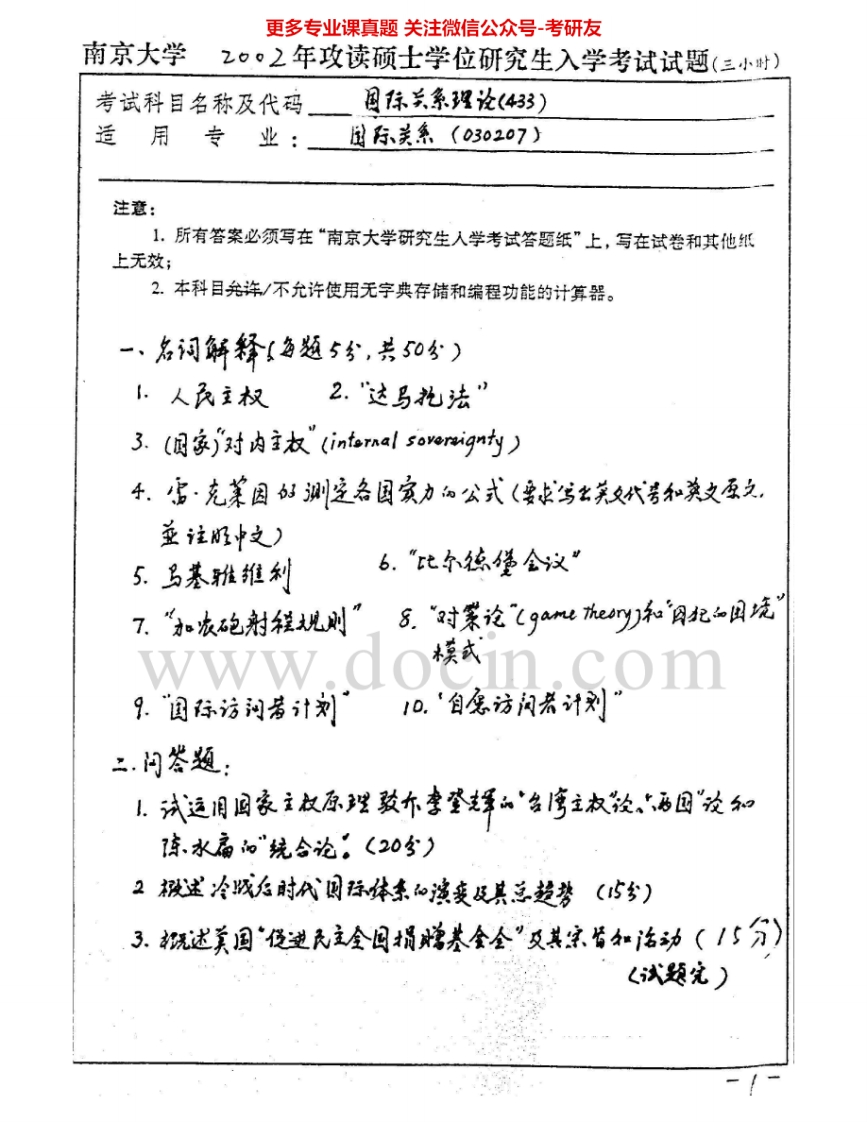 更多专业课真题 关注微信公众号-考研友
南京大学 2002年攻读硕士学位研究生入学考试试题(三小时)
考试科目名称及代码 国际关系理论(433)
适用专业： 国际关系 (030207)
注意：
1. 所有答案必须写在“南京大学研究生入学考试答题纸”上，写在试卷和其他纸
上无效；
2. 本科目允许/不允许使用无字典存储和编程功能的计算器。
一、名词解释(每题5分,共50分)
1. 人民主权 2. “达马托法”
3. (国家)“对内主权”(internal sovereignty)
4. 雷·克莱因的测定各国实力的公式(要求写出英文代号和英文原文,
並注明中文)
5. 马基雅维利 6. “比尔德堡会议”
7. “加农砲射程规则” 8. “对策论”(game theory)和“囚犯的困境”
模式
www.docin.com
9. “国际访问者计划” 10. “自愿访问者计划”
二.问答题：
1. 试运用国家主权原理驳斥李登辉的“台湾主权”论、“两国”论和
陈水扁的“统合论”。(20分)
2 概述冷战后时代国际体系的演变及其总趋势 (15分)
3. 概述美国“促进民主全国捐赠基金会”及其宗旨和活动 (15分)
(试题完)
-1-